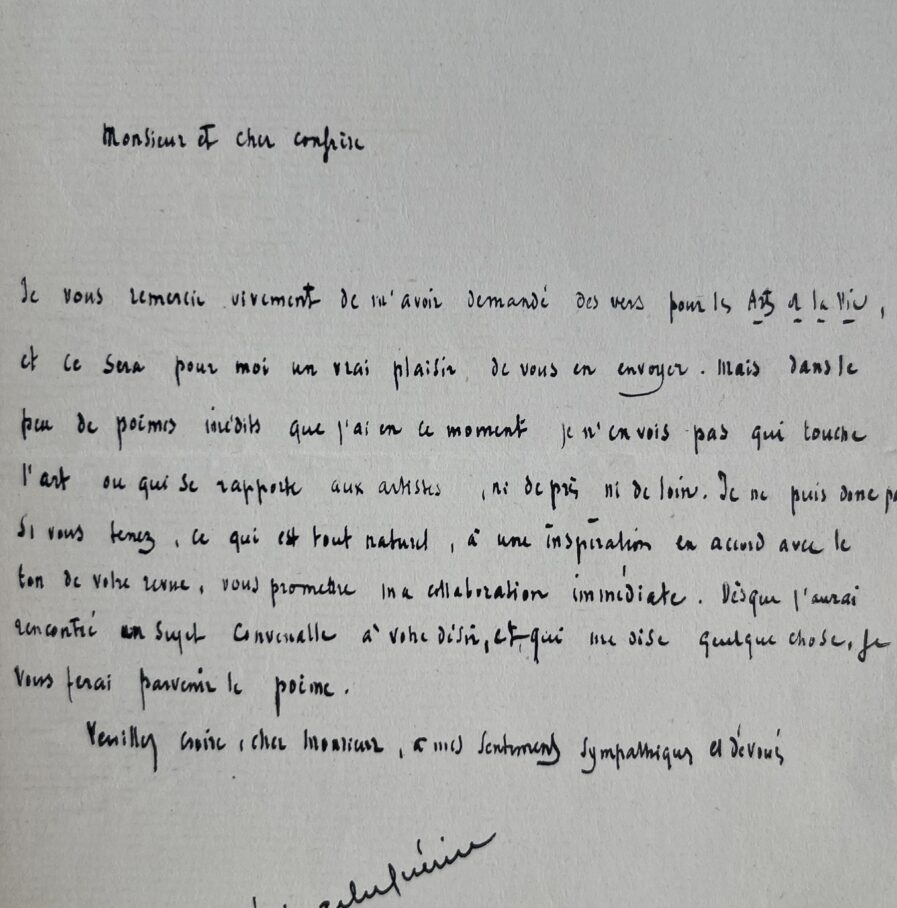 Monsieur et cher confrère
Je vous remercie vivement de m'avoir demandé des vers pour les Arts et la Vie,
et ce sera pour moi un vrai plaisir de vous en envoyer. Mais dans le
peu de poèmes inédits que j'ai en ce moment je n'en vois pas qui touche
l'art ou qui se rapporte aux artistes, ni de près ni de loin. Je ne puis donc pa
si vous tenez, ce qui est tout naturel, à une inspiration en accord avec le
ton de votre revue, vous promettre ma collaboration immédiate. Dès que j'aurai
rencontré un sujet convenable à votre désir, et qui me dise quelque chose, je
vous ferai parvenir le poème.
Veuillez croire, cher Monsieur, à mes sentiments sympathiques et dévoués